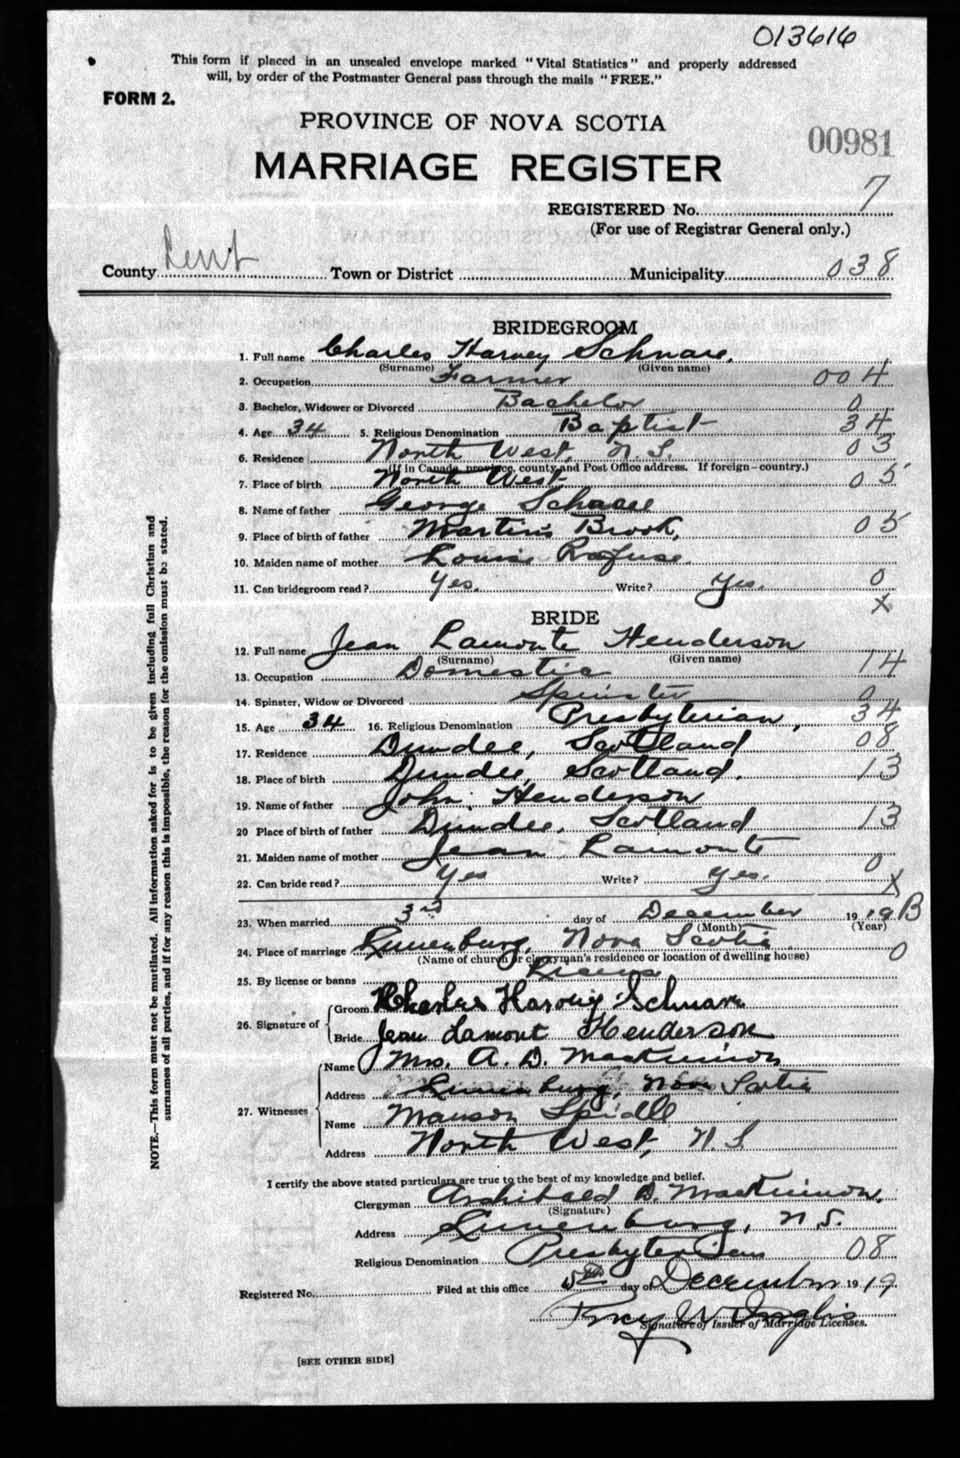 013616
This form if placed in an unsealed envelope marked "Vital Statistics" and properly addressed
will, by order of the Postmaster General pass through the mails "FREE."
FORM 2.
PROVINCE OF NOVA SCOTIA
00981
MARRIAGE REGISTER
REGISTERED No. 7
(For use of Registrar General only.)
County Town or District Municipality 038
BRIDEGROOM
1. Full name Charles Harvey Schnare.
(Surname) (Given name)
2. Occupation Farmer 004
3. Bachelor, Widower or Divorced Bachelor 0
4. Age 34 5. Religious Denomination Baptist 34
6. Residence North West N.S. 03
(If in Canada, province, county and Post Office address. If foreign—country.)
7. Place of birth North West 05
8. Name of father George
9. Place of birth of father Martin's Brook, 05
10. Maiden name of mother Louise Rafuse.
11. Can bridegroom read? Yes. Write? Yes. 0
X
BRIDE
12. Full name Jean Lamonte Henderson
(Surname) (Given name)
13. Occupation Domestic 14
14. Spinster, Widow or Divorced Spinster 0
15. Age 34 16. Religious Denomination Presbyterian, 34
17. Residence Dundee, Scotland 08
18. Place of birth Dundee, Scotland. 13
19. Name of father John Henderson
20 Place of birth of father Dundee, Scotland 13
21. Maiden name of mother Jean Lamonte
22. Can bride read? Yes Write? Yes. 0
X
23. When married 3rd day of December 19 19 B
(Month) (Year)
24. Place of marriage Lunenburg, Nova Scotia 0
(Name of church or clergyman's residence or location of dwelling house)
25. By license or banns License
26. Signature of Groom Charles Harvey Schnare
Bride Jean Lamont Henderson
27. Witnesses Name Mrs. A. D. MacKinnon
Address Lunenburg, Nova Scotia
Name Manson Spidle
Address North West, N.S
I certify the above stated particulars are true to the best of my knowledge and belief.
Clergyman Archibald D. MacKinnon.
(Signature)
Address Lunenburg, N.S.
Religious Denomination Presbyterian 08
Registered No. Filed at this office 5th day of December 19 19
Signature of Issuer of Marriage Licenses.
[SEE OTHER SIDE]
NOTE.—This form must not be mutilated. All information asked for is to be given including full Christian and
surnames of all parties, and if for any reason this is impossible, the reason for the omission must be stated.